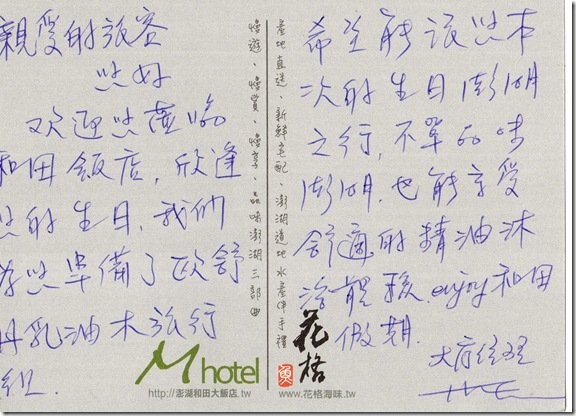 親愛的旅客
您好
欢迎您蒞臨
和田飯店,欣逢
您的生日,我們
為您準備了欧舒
丹乳油木旅行
組.
M hotel
http://澎湖和田大飯店.tw
慢遊、慢賞、慢享、品味澎湖三部曲
產地直送、新鮮宅配、澎湖道地水產伴手禮
希望能讓您本
次的生日澎湖
之行,不單品味
澎湖,也能享受
舒適的精油沐
浴體驗.enjoy和田
假期.
花格
魚
www.花格海味.tw